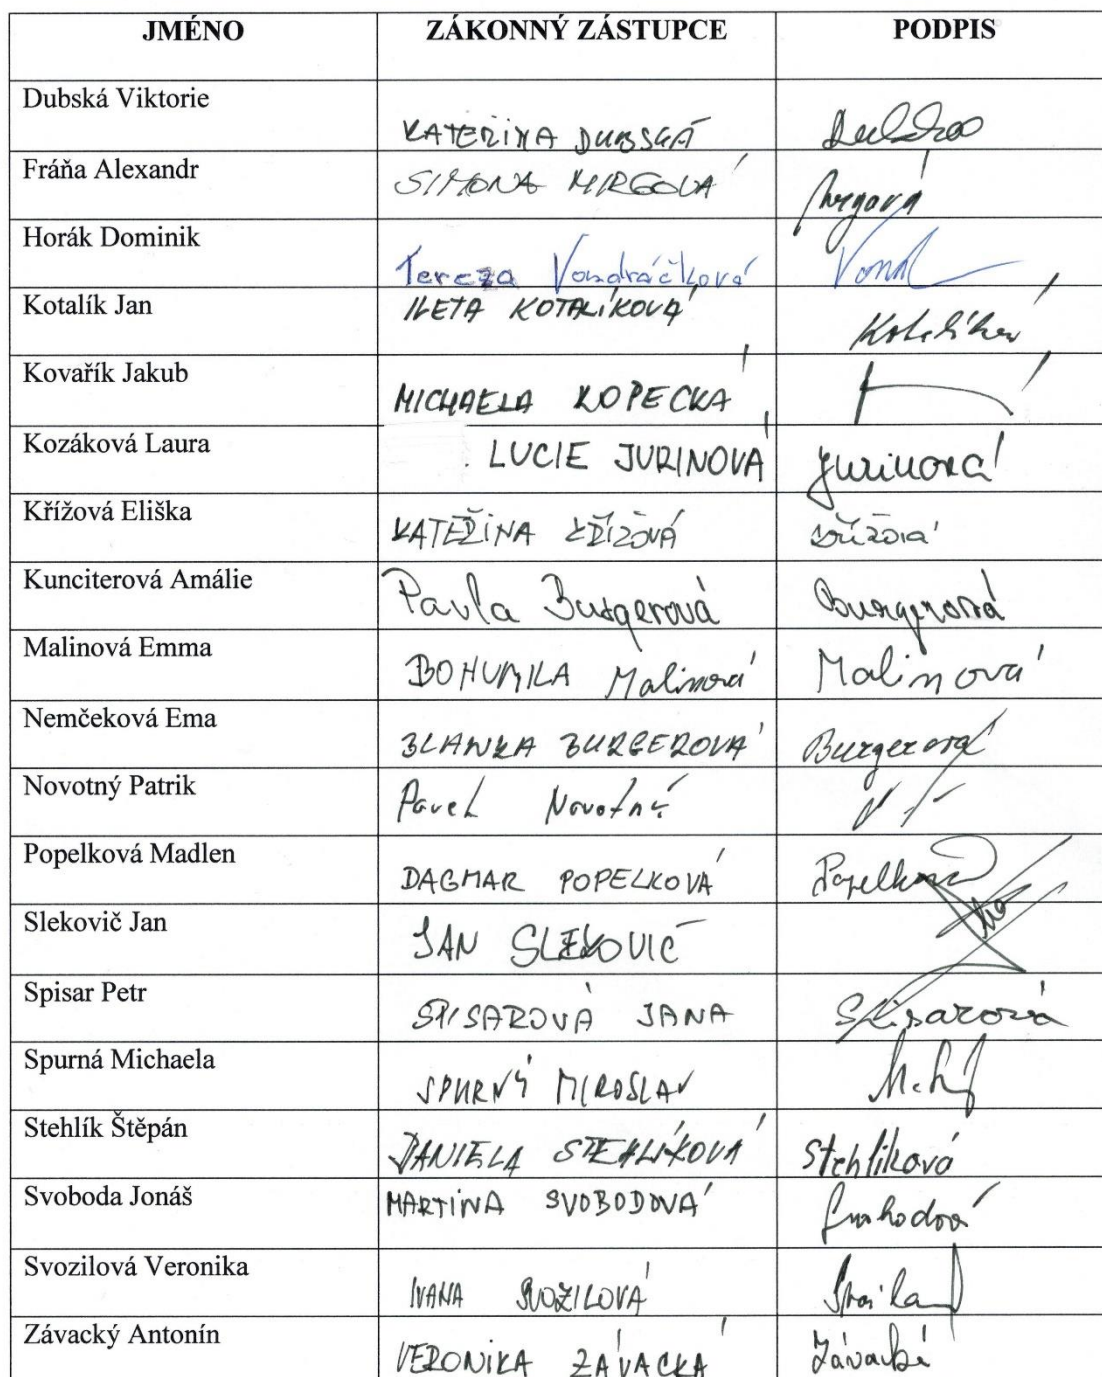 JMÉNO ZÁKONNÝ ZÁSTUPCE PODPIS
Dubská Viktorie KATEŘINA DUBSKÁ
Fráňa Alexandr SIMONA MIRGOVÁ Mirgová
Horák Dominik Tereza Vondráčková
Kotalík Jan IVETA KOTALÍKOVÁ
Kovařík Jakub MICHAELA KOPECKÁ
Kozáková Laura LUCIE JURINOVÁ Jurinová
Křížová Eliška KATEŘINA KŘÍŽOVÁ Křížová
Kunciterová Amálie Pavla Burgerová Burgerová
Malinová Emma BOHUMILA Malinová Malinová
Nemčeková Ema BLANKA BURGEROVÁ Burgerová
Novotný Patrik Pavel Novotný
Popelková Madlen DAGMAR POPELKOVÁ Popelková
Slekovič Jan JAN SLEKOVIČ
Spisar Petr SPISAROVÁ JANA Spisarová
Spurná Michaela SPURNÝ MIROSLAV
Stehlík Štěpán DANIELA STEHLÍKOVÁ Stehlíková
Svoboda Jonáš MARTINA SVOBODOVÁ
Svozilová Veronika IVANA SVOZILOVÁ
Závacký Antonín VERONIKA ZÁVACKÁ Závacká